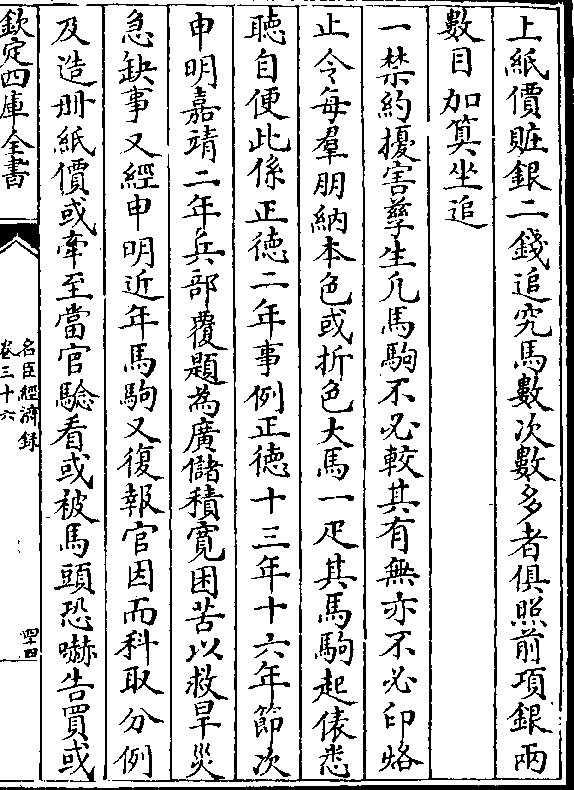 上紙價贓銀二錢追究馬數次數多者俱照前項銀兩
數目加算坐追
一禁約擾害孳生凡馬駒不必較其有無亦不必印烙
止令每羣朋納本色或折色大馬一疋其馬駒起俵悉
聽自便此係正徳二年事例正徳十三年十六年節次
申明嘉靖二年兵部覆題為廣儲積寛困苦以救旱災
急缺事又經申明近年馬駒又復報官因而科取分例
及造册紙價或牽至當官驗看或被馬頭恐嚇告買或
欽定四庫全書
名臣經濟錄
卷三十六
四十四